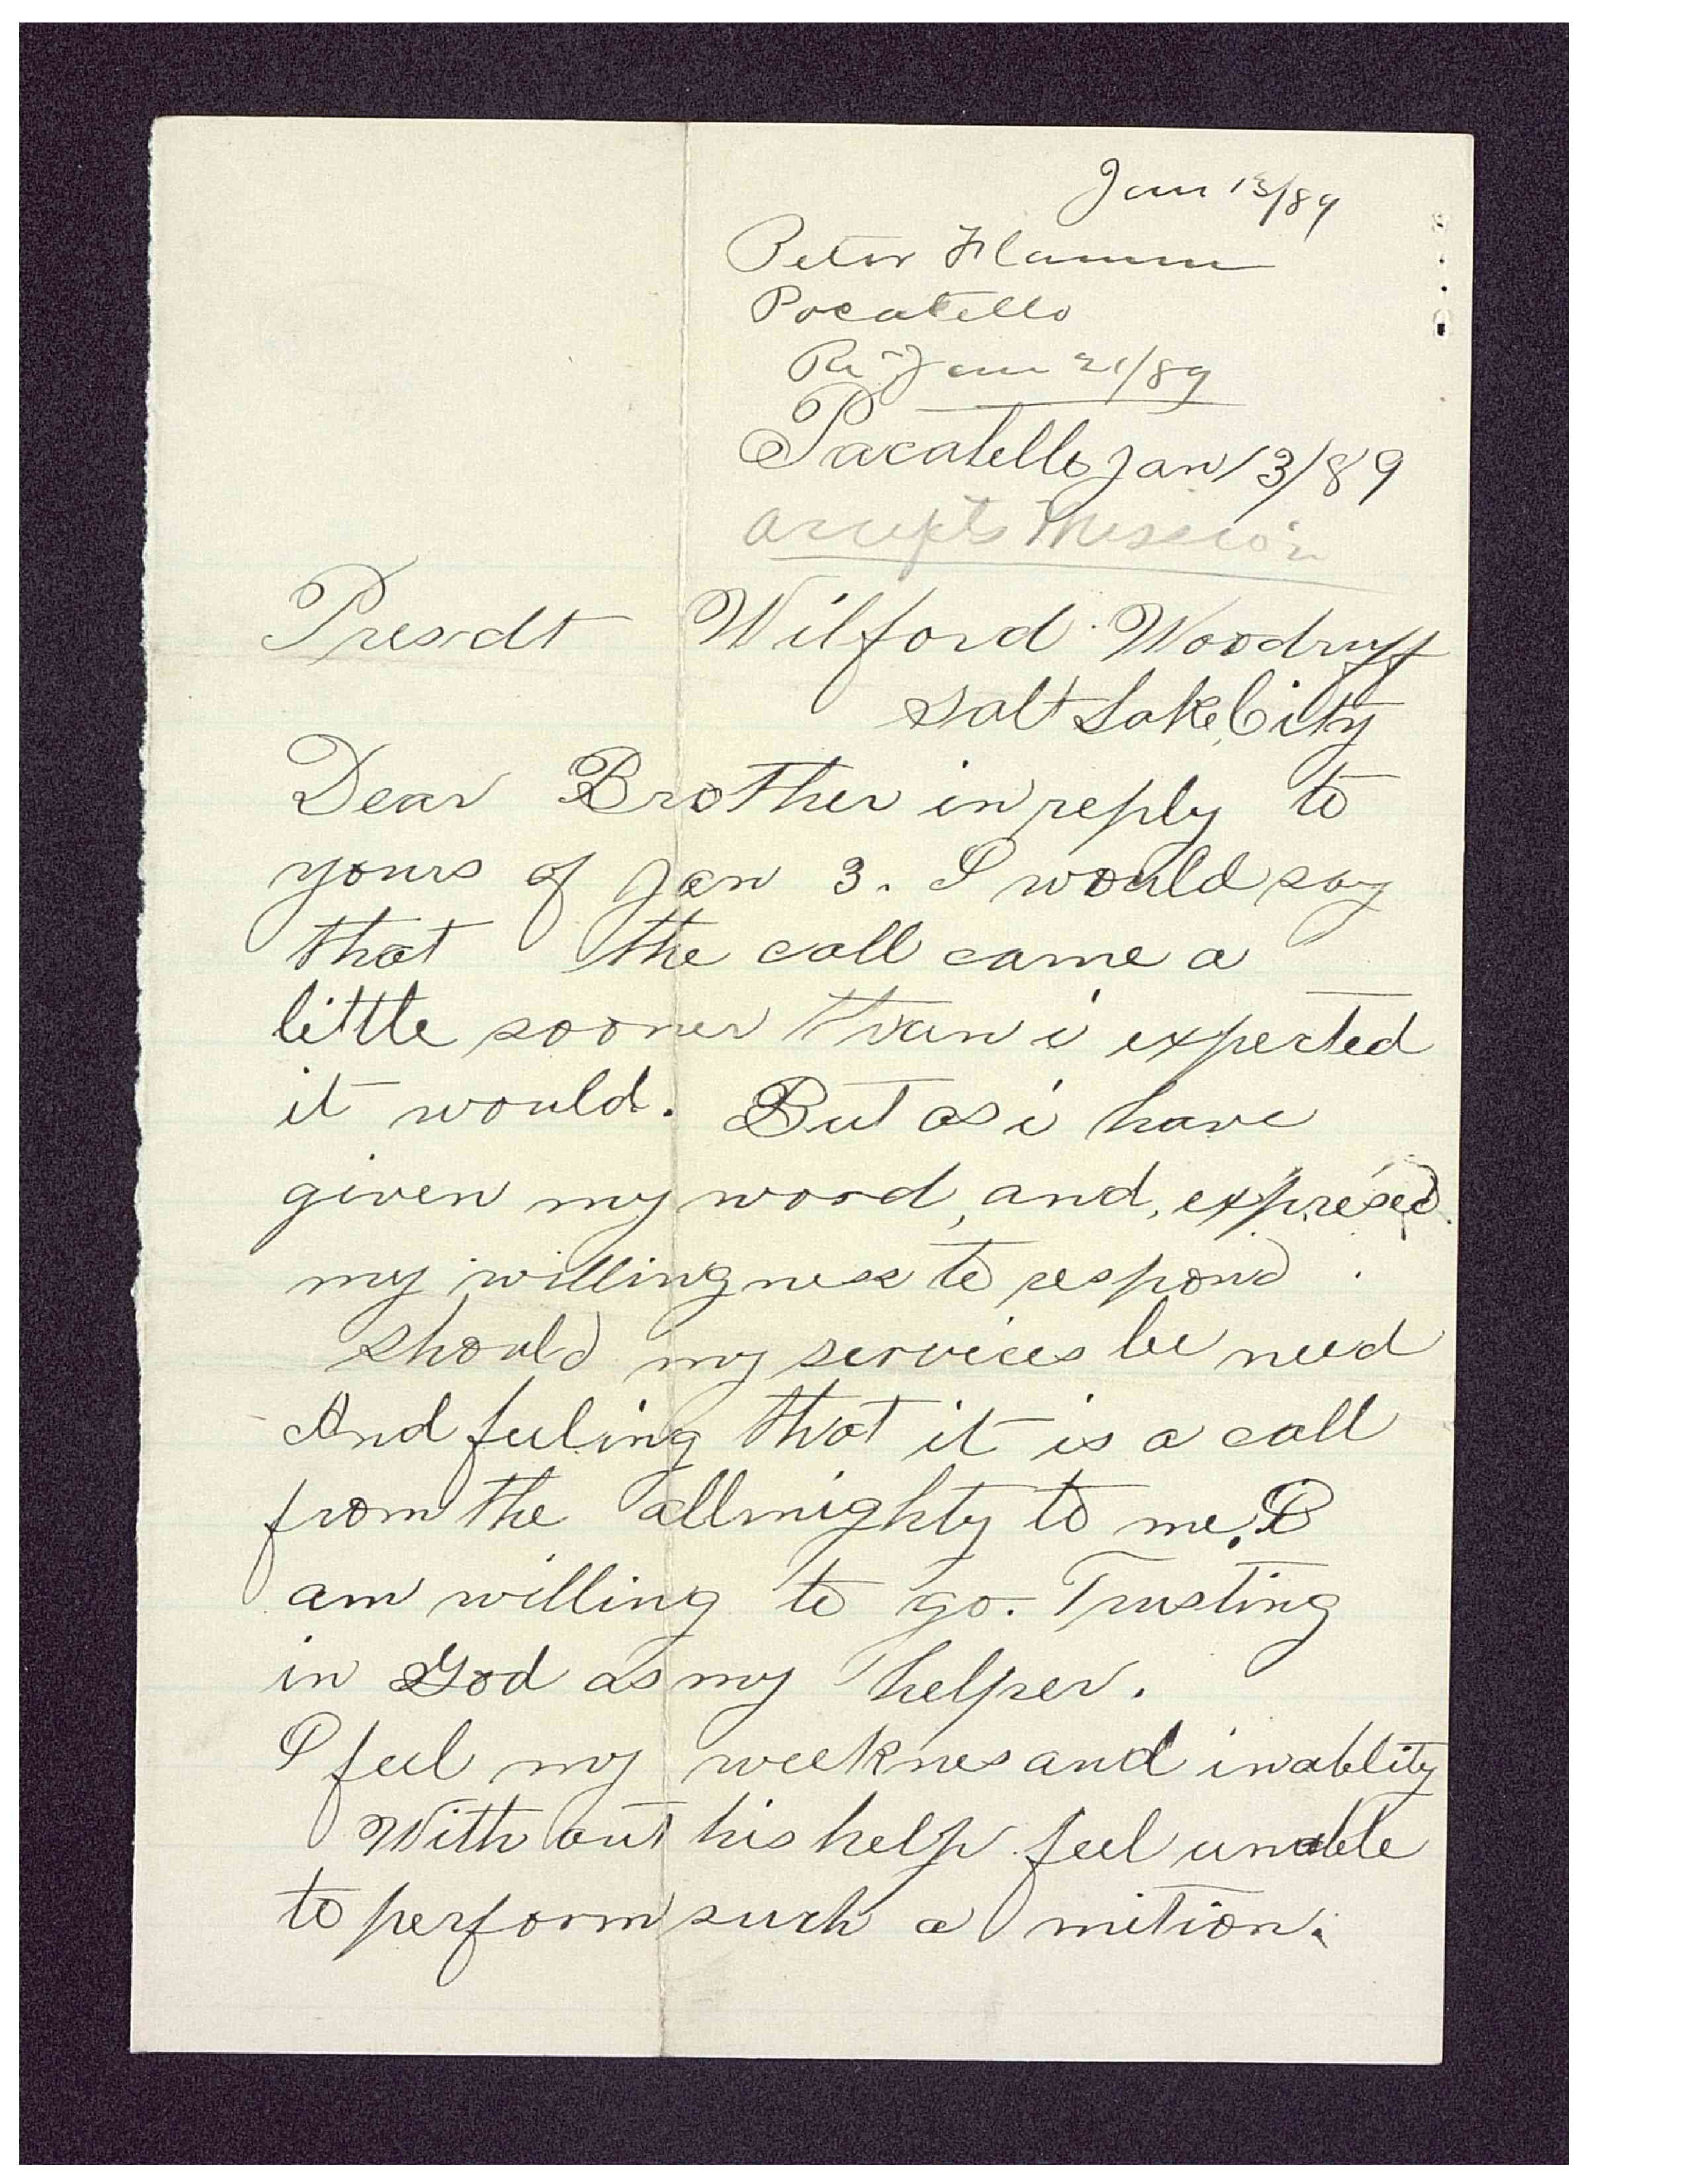 Jan 13/89
Peter Flamm
Pocatello
Re- Jan 21/89
Pacatello Jan 13/89
accepts Mission
Presdt Wilford Woodruff
Salt Lake City
Dear Brother in reply to
yours of Jan 3. I would say
that the call came a
little sooner than i expected
it would. But as i have
given my word, and, expresed
my willingness to respond.
should my services be need
And feeling that it is a call
from the allmighty to me. I
am willing to go. Trusting
in God as my helper.
I feel my weeknes and inablity
With out his help feel unable
to perform such a mition.